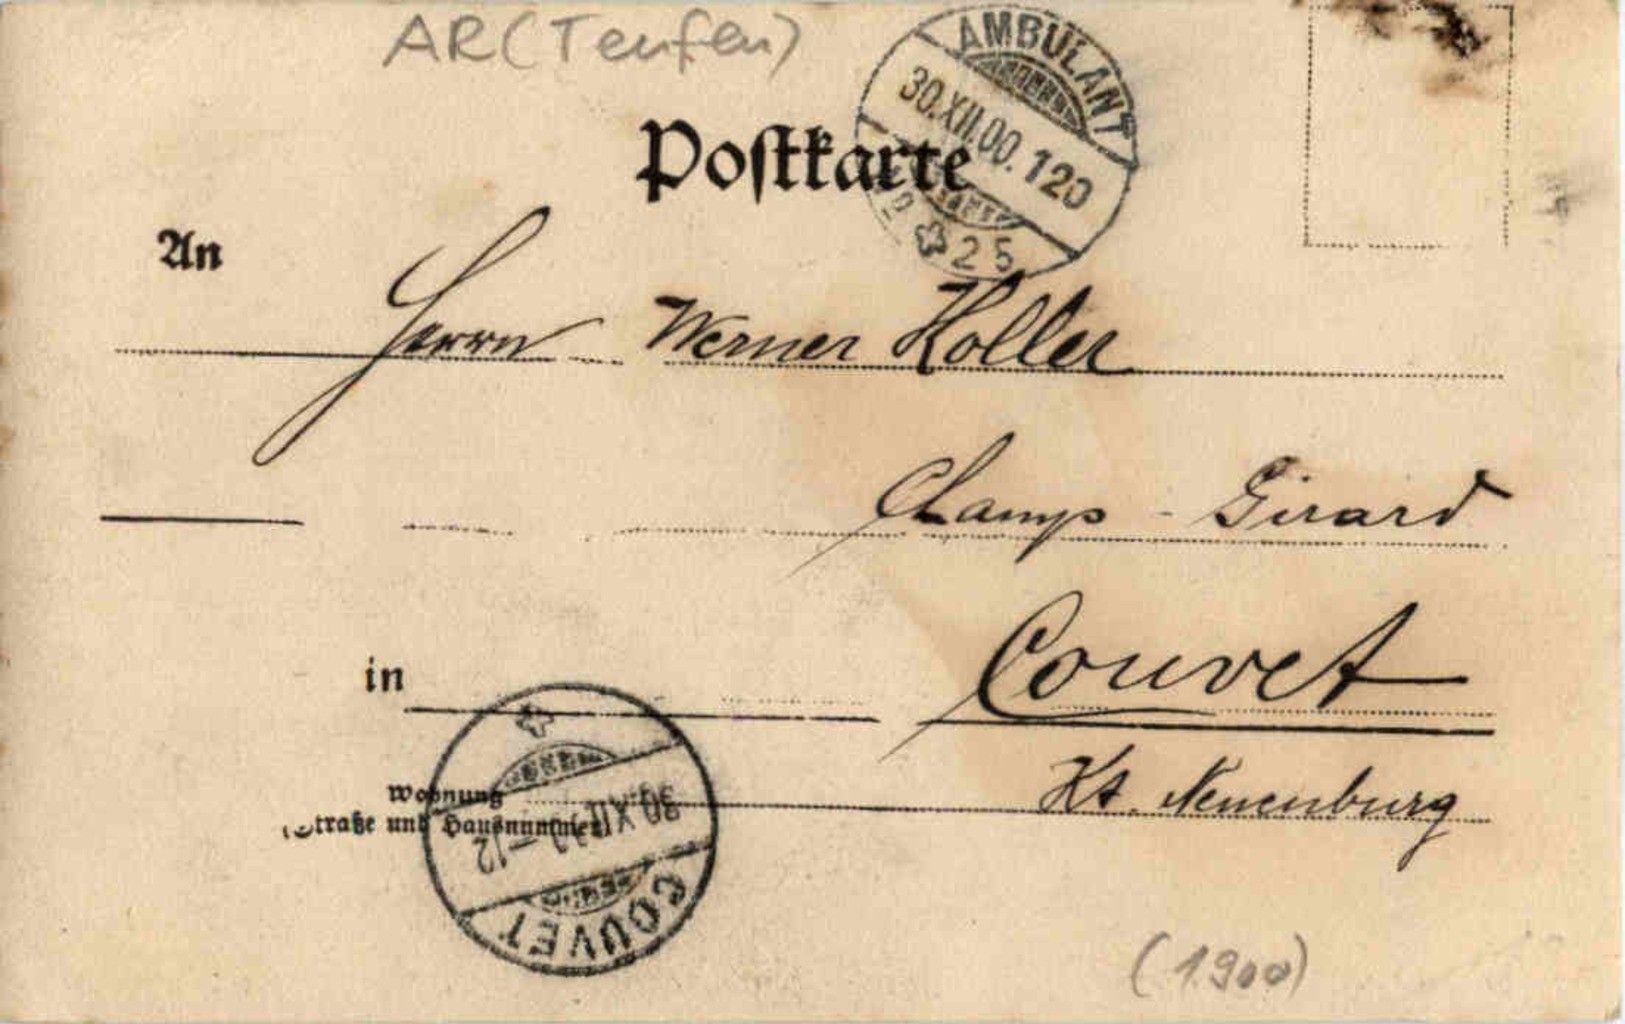 AR (Teufen)
AMBULANT
30.XII.00. 120
25
Postkarte
An
Herrn Werner Holler
Champ - Girard
in Couvet
Kt. Neuenburg
Wohnung
(Straße und Hausnummer)
30.XII
-12
COUVET
(1900)